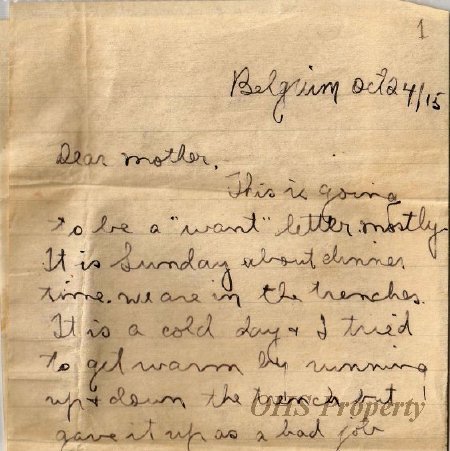 1
Belgium Oct 24/15
Dear mother.
This is going
to be a "want" letter mostly
It is Sunday about dinner
time. we are in the trenches.
It is a cold day & I tried
to get warm by running
up & down the trench but I
gave it up as a bad job
OHS Property